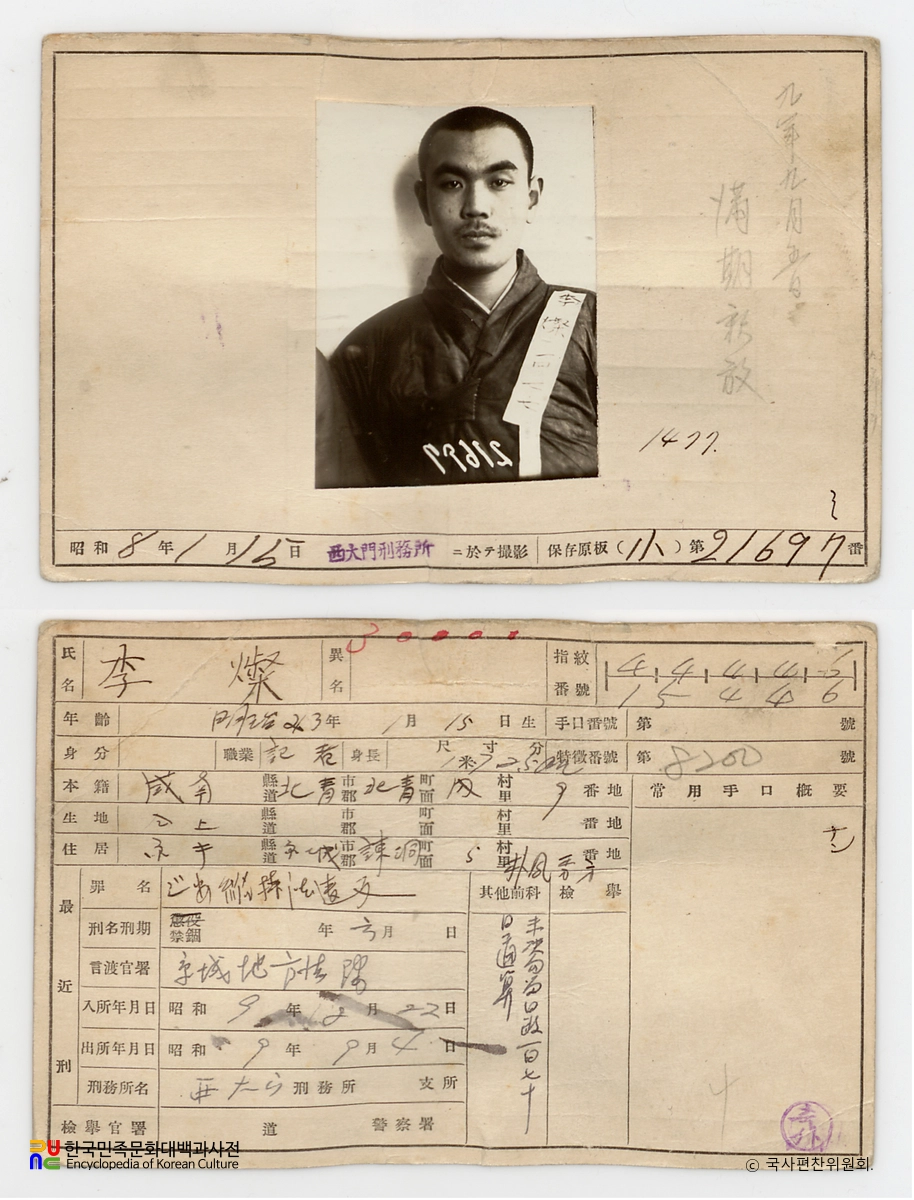 九年九月五日
満期釈放
李燦
21697
1477.
昭和8年1月16日 西大門刑務所 ニ於テ撮影 保存原板(小)第21697番
氏名 李燦 異名 指紋番號
年齡 明治43年1月15日生 手口番號 第 號
身分 職業 記者 身長 尺寸分 特徵番號 第8200號
本籍 咸南 縣道 北青 市郡 北青 町面 內 村里 9 番地 常用手口概要
生地 仝上 縣道 市郡 町面 村里 番地
住居 京キ 縣道 京城 市郡 諫洞 町面 5 村里 番地
最近刑
罪名 治安維持法違反 其他前科 檢擧
刑名刑期 懲役 禁錮 年 六月 日
未決勾留日數一百七十日通算
言渡官署 京城地方法院
入所年月日 昭和9年12月22日
出所年月日 昭和9年9月4日
刑務所名 西大門刑務所 支所
檢擧官署 道 警察署
한국민족문화대백과사전
Encyclopedia of Korean Culture
© 국사편찬위원회.